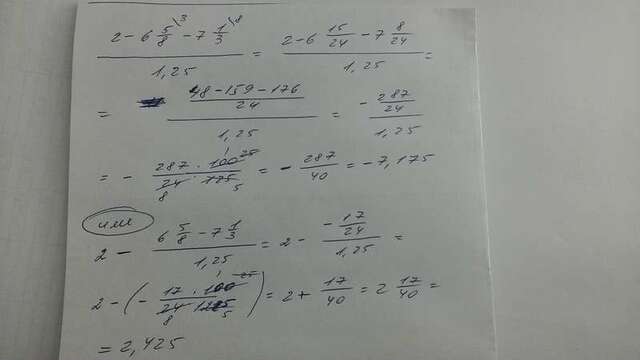 (2 - 6 5/8 - 7 1/3) / 1,25 = (2 - 6 15/24 - 7 8/24) / 1,25 =
= ((48 - 159 - 176)/24) / 1,25 = (- 287/24) / 1,25
= - (287 · 100)/(24 · 125) = - 287/40 = -7,175
или
2 - (6 5/8 - 7 1/3) / 1,25 = 2 - (- 17/24) / 1,25 =
2 - (- (17 · 100)/(24 · 125)) = 2 + 17/40 = 2 17/40 =
= 2,425